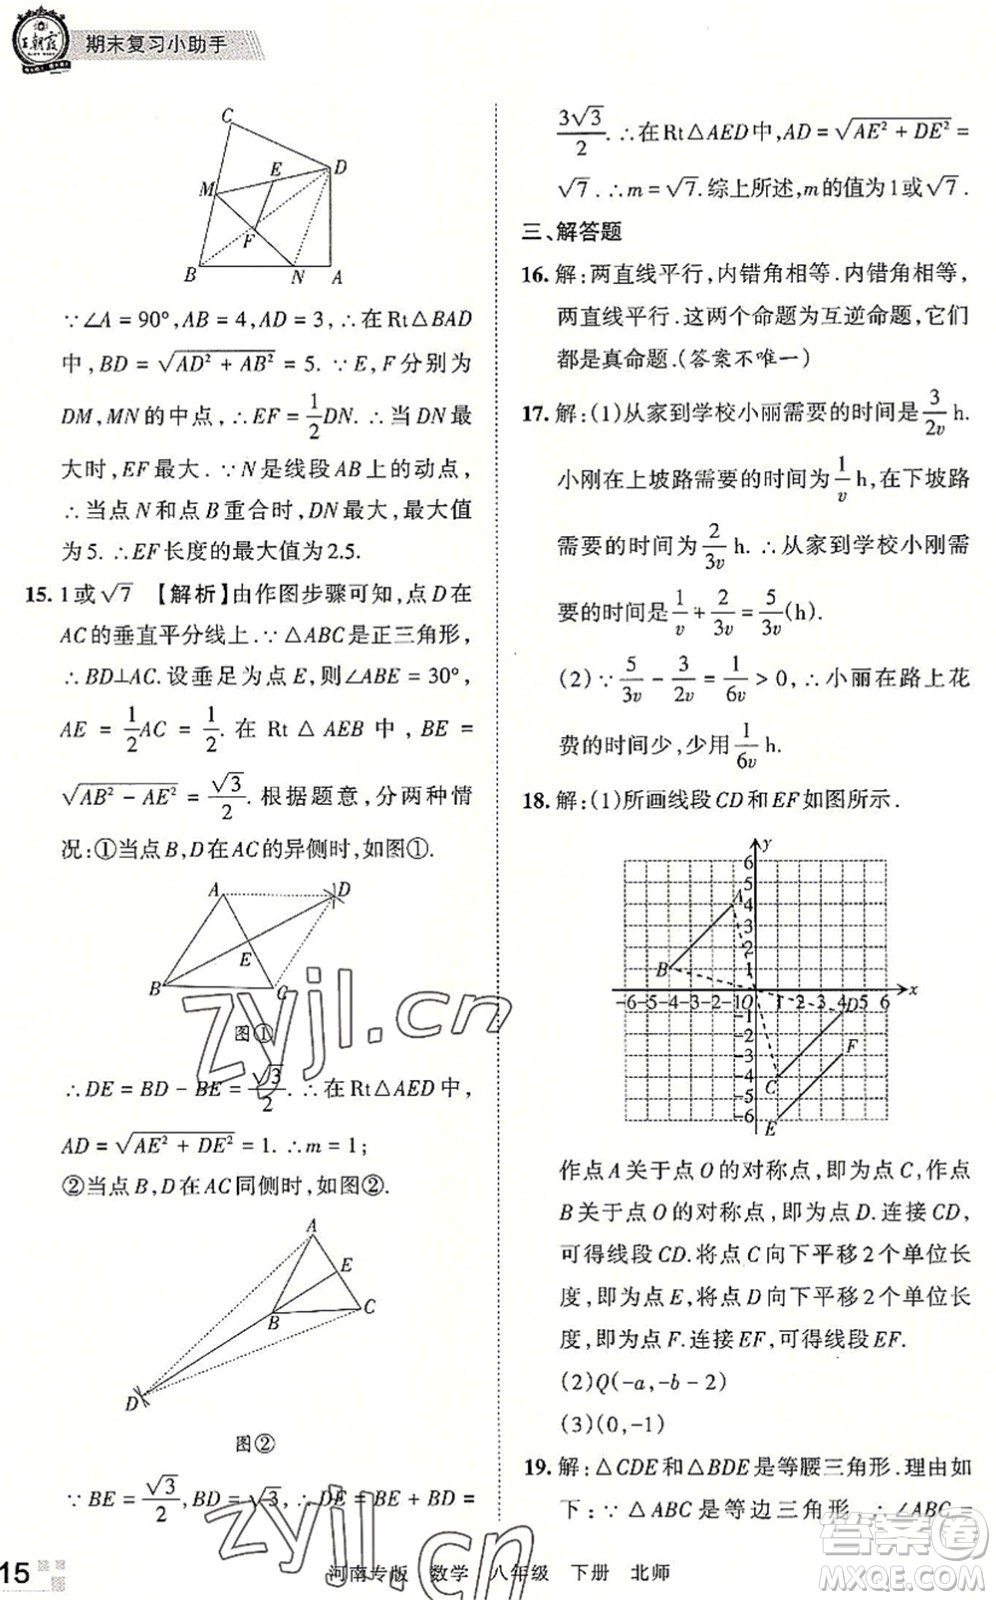 王朝霞
期末复习小助手
C
D
E
M
F
B
N
A
∵∠A = 90°,AB = 4,AD = 3,∴在Rt△BAD
中,BD = √(AD² + AB²) = 5. ∵E,F分别为
DM,MN的中点,∴EF = 1/2 DN. ∴当DN最
大时,EF最大. ∵N是线段AB上的动点,
∴当点N和点B重合时,DN最大,最大值
为5. ∴EF长度的最大值为2.5.
15. 1或√7 【解析】由作图步骤可知,点D在
AC的垂直平分线上.∵△ABC是正三角形,
∴BD⊥AC.设垂足为点E,则∠ABE = 30°,
AE = 1/2 AC = 1/2. 在Rt△AEB中,BE =
√(AB² − AE²) = √3/2. 根据题意,分两种情
况:①当点B,D在AC的异侧时,如图①.
A
D
E
B
C
图①
∴DE = BD − BE = √3/2. ∴在Rt△AED中,
AD = √(AE² + DE²) = 1. ∴m = 1;
②当点B,D在AC同侧时,如图②.
A
E
C
B
D
图②
∵BE = √3/2, BD = √3, ∴DE = BE + BD =
3√3/2. ∴在Rt△AED中,AD = √(AE² + DE²) =
√7. ∴m = √7.综上所述,m的值为1或√7.
三、解答题
16. 解:两直线平行,内错角相等.内错角相等,
两直线平行.这两个命题为互逆命题,它们
都是真命题.(答案不唯一)
17. 解:(1)从家到学校小丽需要的时间是3/2v h.
小刚在上坡路需要的时间为1/v h,在下坡路
需要的时间为2/3v h. ∴从家到学校小刚需
要的时间是1/v + 2/3v = 5/3v(h).
(2)∵5/3v − 3/2v = 1/6v > 0,∴小丽在路上花
费的时间少,少用1/6v h.
18. 解:(1)所画线段CD和EF如图所示.
y
6
5
A
4
3
2
B
1
-6-5-4-3-2-1O 1 2 3 4 5 6 x
D
-1
-2
F
-3
C
-4
-5
-6
E
作点A关于点O的对称点,即为点C,作点
B关于点O的对称点,即为点D.连接CD,
可得线段CD.将点C向下平移2个单位长
度,即为点E,将点D向下平移2个单位长
度,即为点F.连接EF,可得线段EF.
(2)Q(-a,-b-2)
(3)(0,-1)
19. 解:△CDE和△BDE是等腰三角形.理由如
下:∵△ABC是等边三角形,∴∠ABC =
15
河南专版 数学 八年级 下册 北师
zyjl.cn
zyjl.cn
答案圈
MXQE.COM